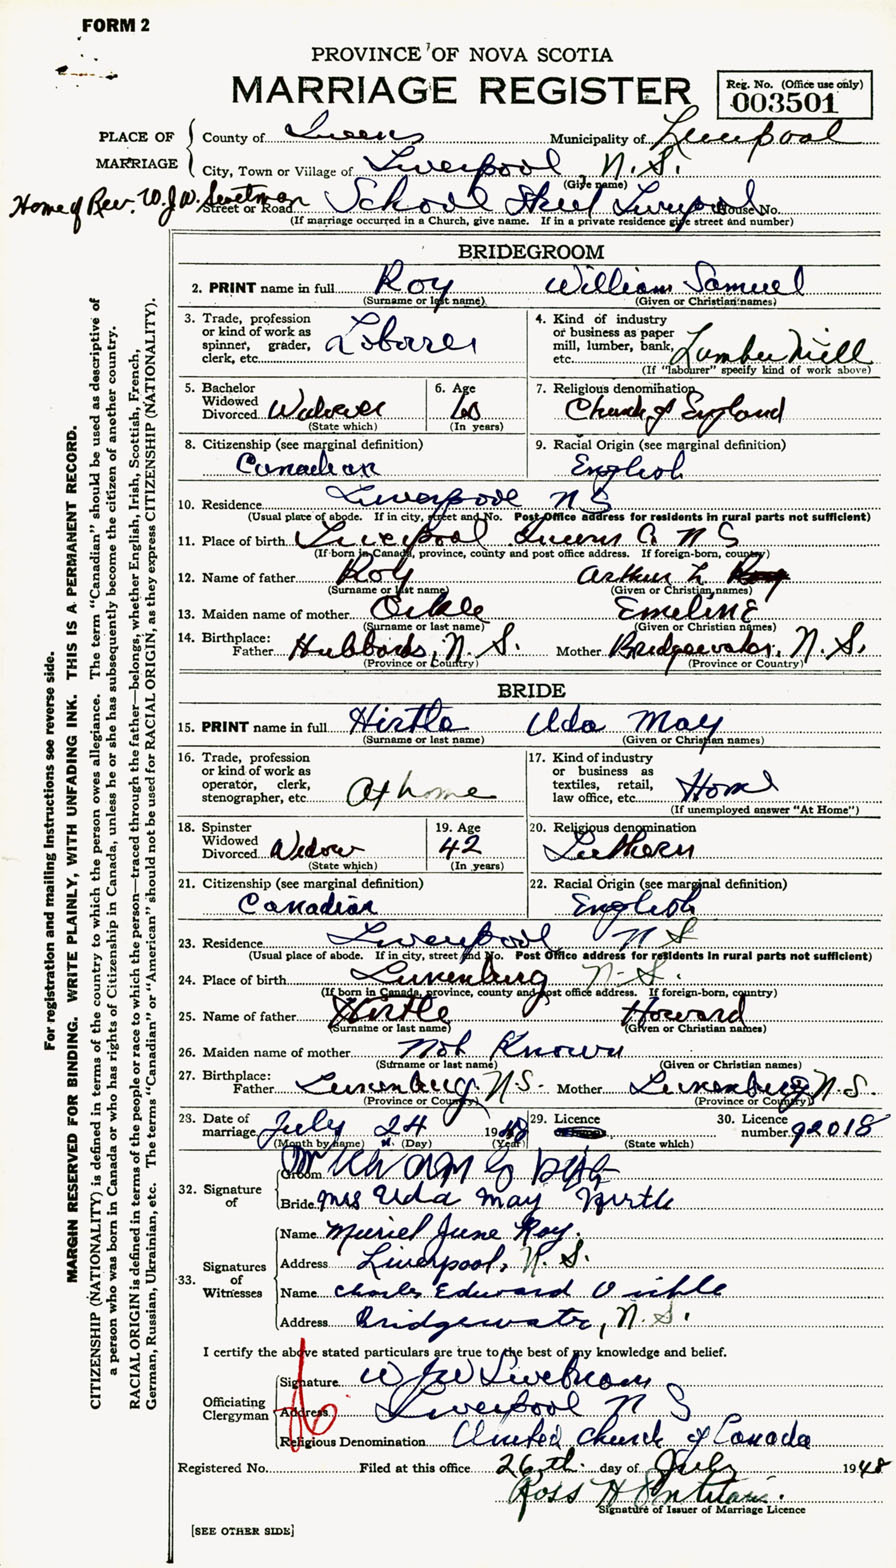 FORM 2
PROVINCE OF NOVA SCOTIA
MARRIAGE REGISTER
Reg. No. (Office use only)
003501
PLACE OF MARRIAGE
County of Queens Municipality of Liverpool
City, Town or Village of Liverpool N.S.
(Give name)
Home of Rev. W. J. W.
Street or Road School Street Liverpool House No.
(If marriage occurred in a Church, give name. If in a private residence give street and number)
BRIDEGROOM
2. PRINT name in full Roy William Samuel
(Surname or last name) (Given or Christian names)
3. Trade, profession or kind of work as spinner, grader, clerk, etc. Laborer
4. Kind of industry or business as paper mill, lumber, bank, etc. Lumber Mill
(If "labourer" specify kind of work above)
5. Bachelor Widowed Divorced Widower
(State which)
6. Age 60
(In years)
7. Religious denomination
Church of England
8. Citizenship (see marginal definition)
Canadian
9. Racial Origin (see marginal definition)
English
10. Residence Liverpool N S
(Usual place of abode. If in city, street and No. Post Office address for residents in rural parts not sufficient)
11. Place of birth Liverpool Queens Co N S
(If born in Canada, province, county and post office address. If foreign-born, country)
12. Name of father Roy Arthur L
(Surname or last name) (Given or Christian names)
13. Maiden name of mother Oikle Emeline
(Surname or last name) (Given or Christian names)
14. Birthplace:
Father Hubbards, N.S. Mother Bridgewater, N.S.
(Province or Country) (Province or Country)
BRIDE
15. PRINT name in full Hirtle Uda May
(Surname or last name) (Given or Christian names)
16. Trade, profession or kind of work as operator, clerk, stenographer, etc. At home
17. Kind of industry or business as textiles, retail, law office, etc. Home
(If unemployed answer "At Home")
18. Spinster Widowed Divorced Widow
(State which)
19. Age 42
(In years)
20. Religious denomination
Luthern
21. Citizenship (see marginal definition)
Canadian
22. Racial Origin (see marginal definition)
English
23. Residence Liverpool N S
(Usual place of abode. If in city, street and No. Post Office address for residents in rural parts not sufficient)
24. Place of birth Lunenburg N.S.
(If born in Canada, province, county and post office address. If foreign-born, country)
25. Name of father Hirtle Howard
(Surname or last name) (Given or Christian names)
26. Maiden name of mother Not Known
(Surname or last name) (Given or Christian names)
27. Birthplace:
Father Lunenburg, N.S. Mother Lunenburg N.S.
(Province or Country) (Province or Country)
28. Date of marriage July 24 1948
(Month by name) (Day) (Year)
29. Licence
(State which)
30. Licence number 92018
32. Signature of
Groom
Bride Mrs Uda May Hirtle
33. Signatures of Witnesses
Name Muriel June Roy.
Address Liverpool, N.S.
Name Charles Edward
Address Bridgewater, N.S.
I certify the above stated particulars are true to the best of my knowledge and belief.
Officiating Clergyman
Signature W J W
Address Liverpool N S
Religious Denomination United Church of Canada
Registered No. Filed at this office 26th. day of July 1948
Ross H
Signature of Issuer of Marriage Licence
[SEE OTHER SIDE]
For registration and mailing instructions see reverse side.
MARGIN RESERVED FOR BINDING. WRITE PLAINLY, WITH UNFADING INK. THIS IS A PERMANENT RECORD.
CITIZENSHIP (NATIONALITY) is defined in terms of the country to which the person owes allegiance. The term "Canadian" should be used as descriptive of
a person who was born in Canada or who has rights of Citizenship in Canada, unless he or she has subsequently become the citizen of another country.
RACIAL ORIGIN is defined in terms of the people or race to which the person—traced through the father—belongs, whether English, Irish, Scottish, French,
German, Russian, Ukrainian, etc. The terms "Canadian" or "American" should not be used for RACIAL ORIGIN, as they express CITIZENSHIP (NATIONALITY).